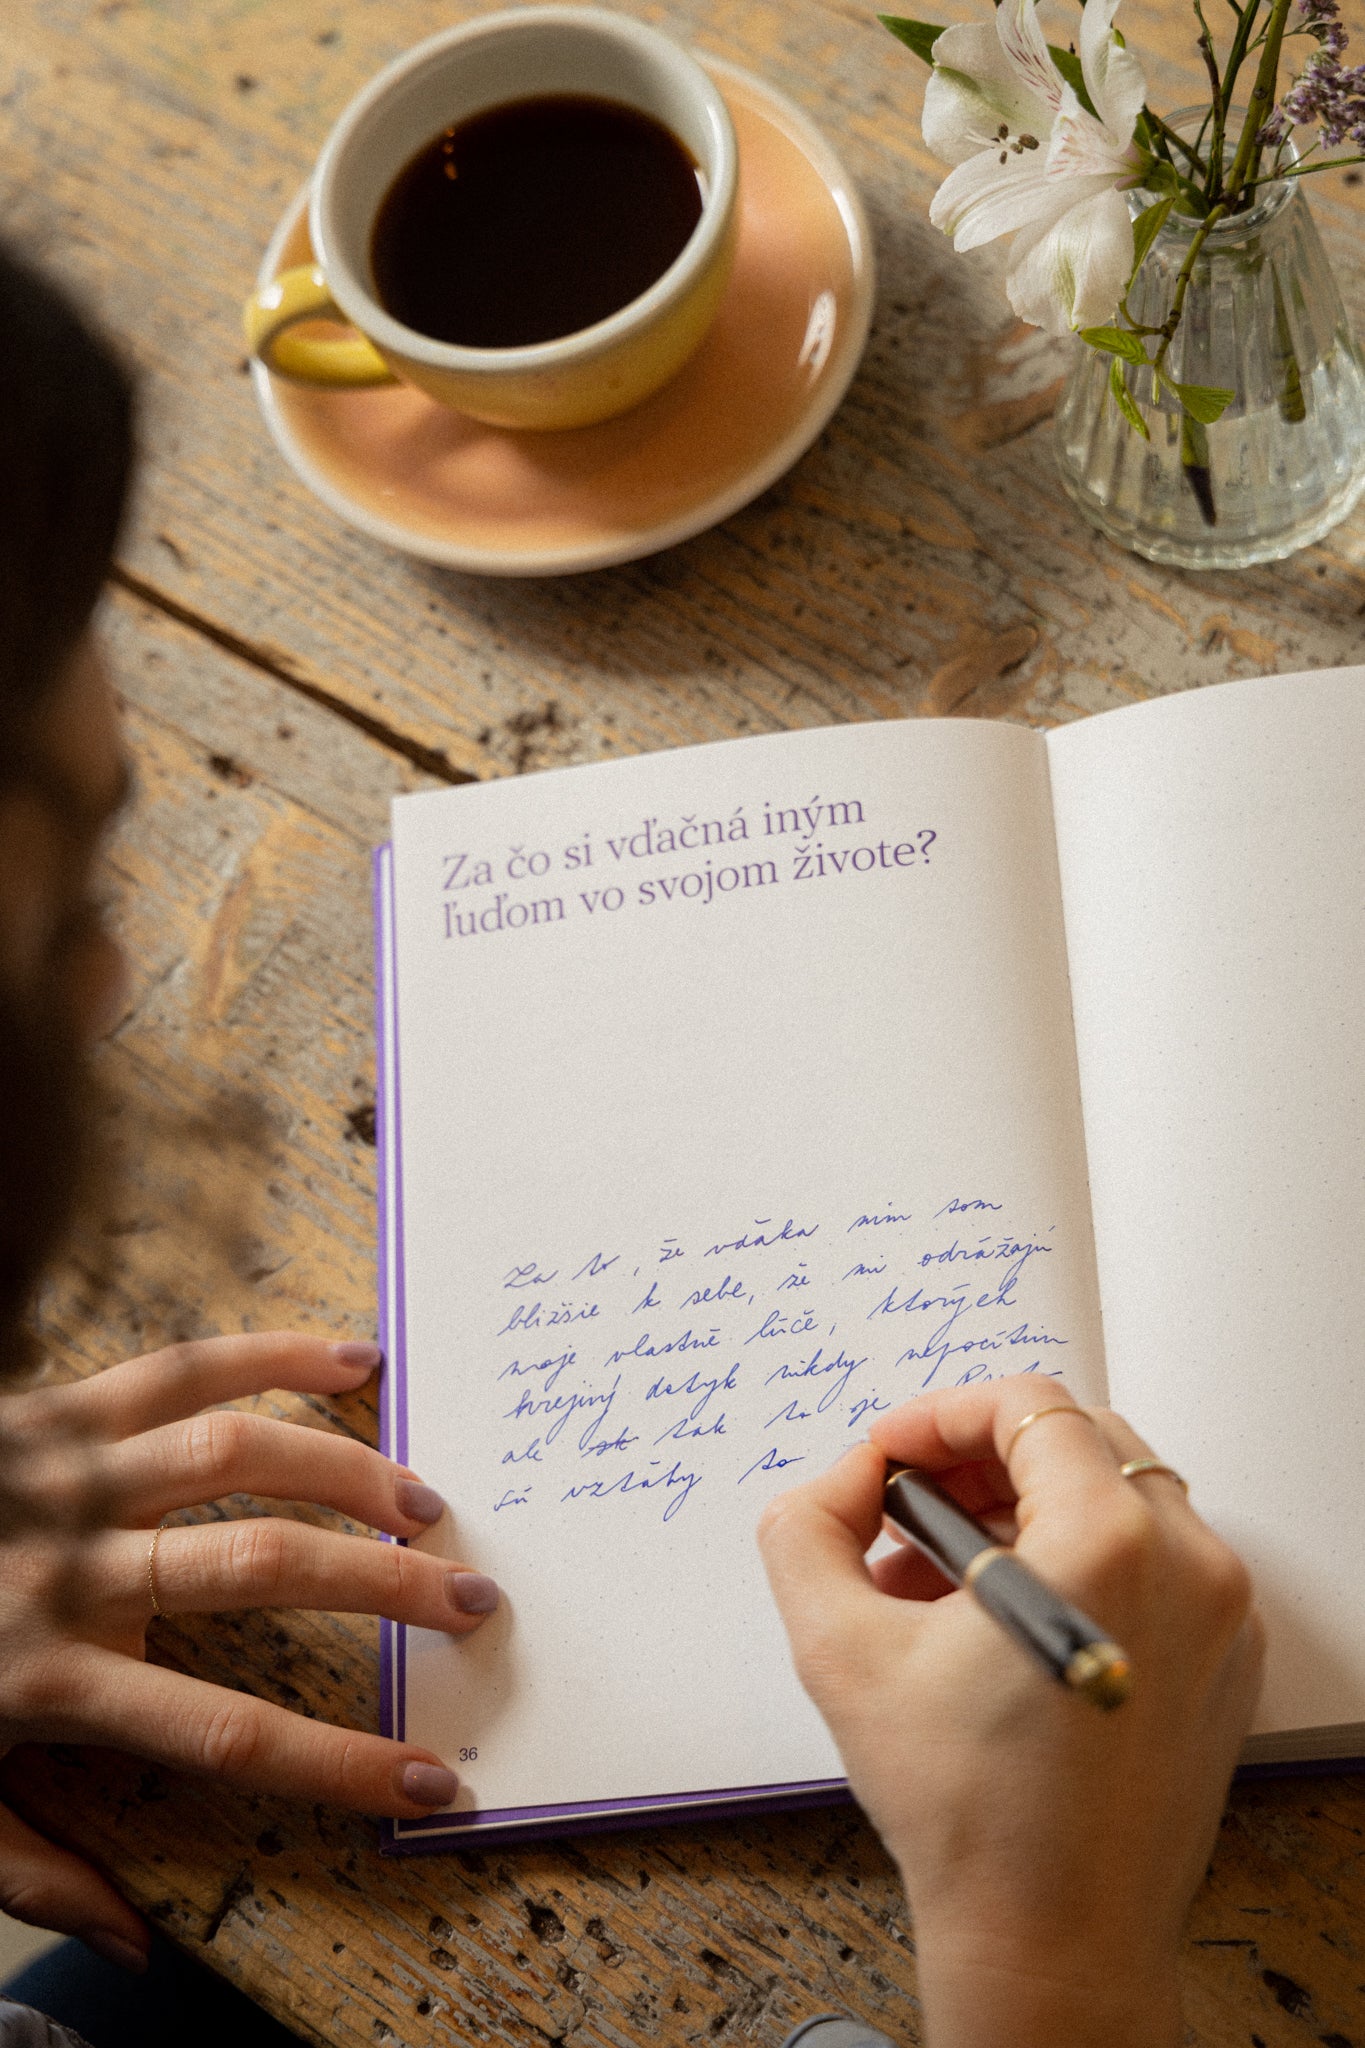 Za čo si vďačná iným
ľuďom vo svojom živote?
Za to, že vďaka nim som
bližšie k sebe, že mi odrážajú
moje vlastné lúče, ktorých
hrejivý dotyk nikdy nepocítim
ale tak to je
sú vzťahy to
36